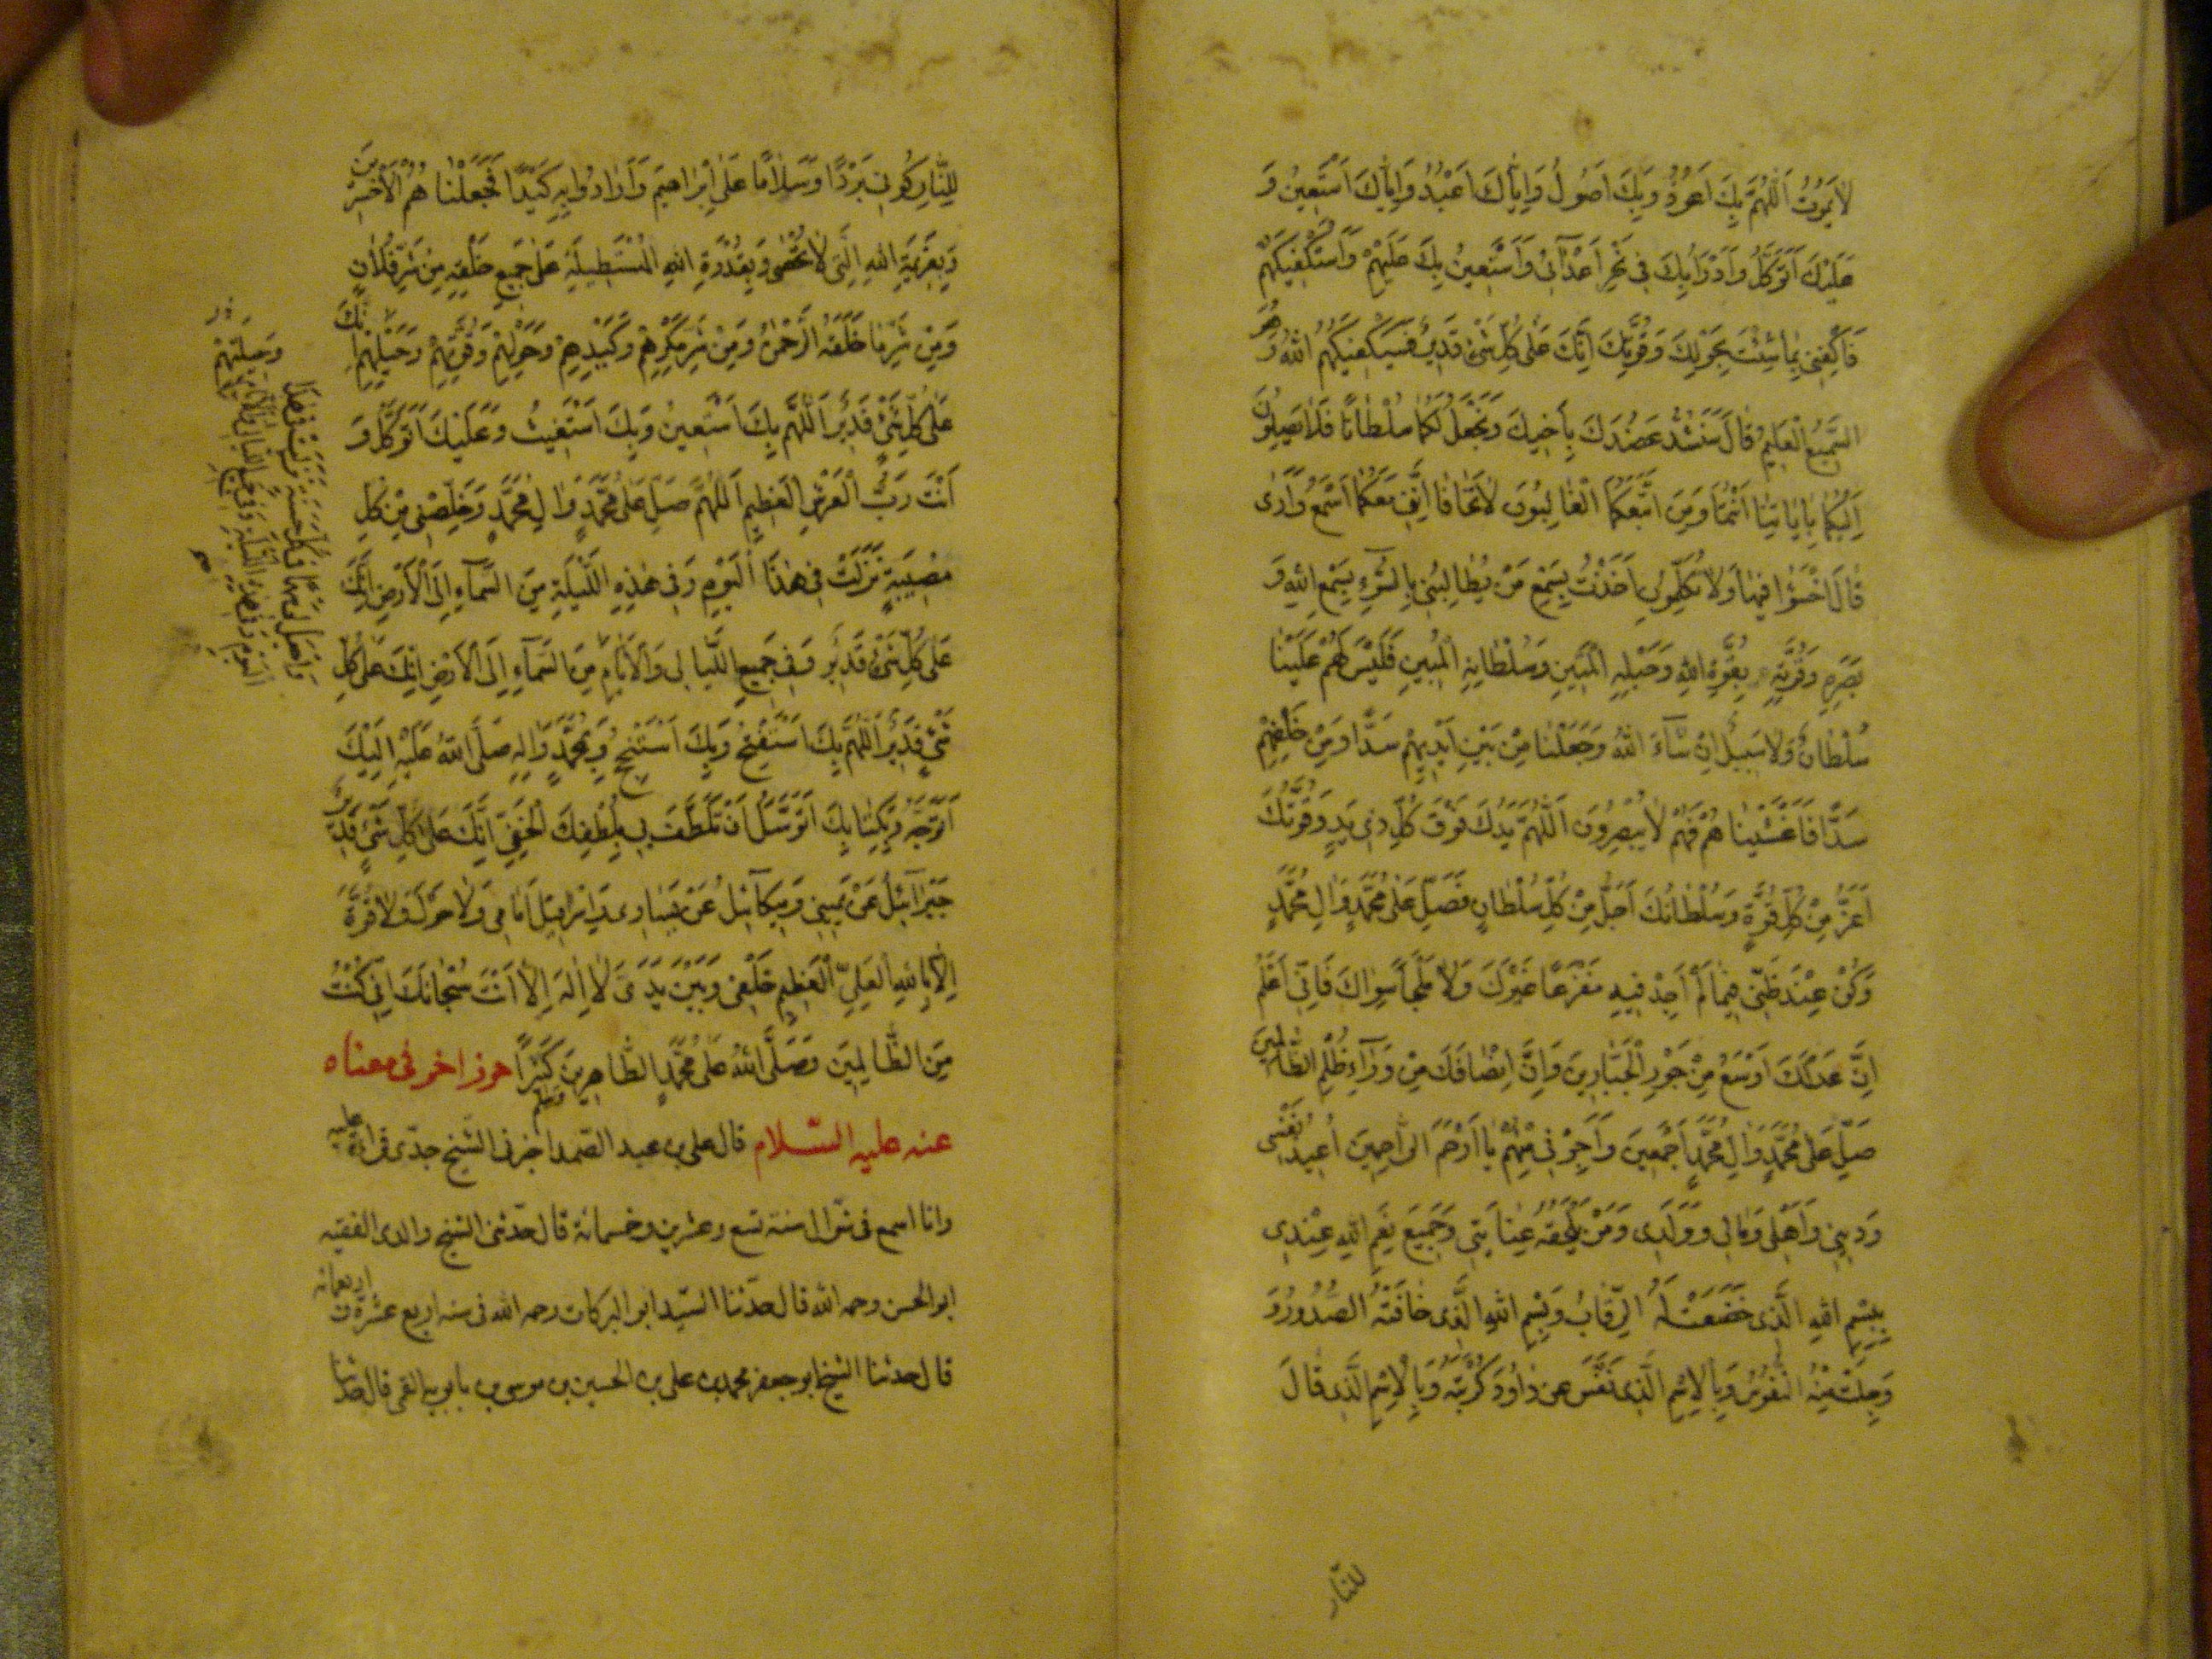 لَا يَمُوتُ اَللّٰهُمَّ بِكَ اَعُوذُ وَبِكَ اَصُولُ وَاِيَّاكَ اَعْبُدُ وَاِيَّاكَ اَسْتَعِينُ وَ
عَلَيْكَ اَتَوَكَّلُ وَاَدْرَاُ بِكَ فِي نَحْرِ اَعْدَآئِي وَاَسْتَعِينُ بِكَ عَلَيْهِمْ وَاَسْتَكْفِيكَهُمْ
فَاكْفِنِيهِمْ بِمَا شِئْتَ بِحَوْلِكَ وَقُوَّتِكَ اِنَّكَ عَلٰى كُلِّ شَيْءٍ قَدِيرٌ فَسَيَكْفِيكَهُمُ اللّٰهُ وَهُوَ
السَّمِيعُ الْعَلِيمُ قَالَ سَنَشُدُّ عَضُدَكَ بِاَخِيكَ وَنَجْعَلُ لَكُمَا سُلْطَانًا فَلَا يَصِلُونَ
اِلَيْكُمَا بِاٰيَاتِنَا اَنْتُمَا وَمَنِ اتَّبَعَكُمَا الْغَالِبُونَ لَا تَخَافَا اِنَّنِي مَعَكُمَا اَسْمَعُ وَاَرٰى
قَالَ اخْسَؤُا فِيهَا وَلَا تُكَلِّمُونِ اَخَذْتُ بِسَمْعِ مَنْ يُطَالِبُنِي بِالسُّوٓءِ بِسَمْعِ اللّٰهِ وَ
بَصَرِهِ وَقُوَّتِهِ بِقُوَّةِ اللّٰهِ وَحَبْلِهِ الْمَتِينِ وَسُلْطَانِهِ الْمُبِينِ فَلَيْسَ لَهُمْ عَلَيْنَا
سُلْطَانٌ وَلَا سَبِيلٌ اِنْ شَآءَ اللّٰهُ وَجَعَلْنَا مِنْ بَيْنِ اَيْدِيهِمْ سَدًّا وَمِنْ خَلْفِهِمْ
سَدًّا فَاَغْشَيْنَاهُمْ فَهُمْ لَا يُبْصِرُونَ اَللّٰهُمَّ يَدُكَ فَوْقَ كُلِّ ذِي يَدٍ وَقُوَّتُكَ
اَعَزُّ مِنْ كُلِّ قُوَّةٍ وَسُلْطَانُكَ اَجَلُّ مِنْ كُلِّ سُلْطَانٍ فَصَلِّ عَلٰى مُحَمَّدٍ وَاٰلِ مُحَمَّدٍ
وَكُنْ عِنْدَ ظَنِّي فِيمَا لَمْ اَجِدْ فِيهِ مَفْزَعًا غَيْرَكَ وَلَا مَلْجَاً سِوَاكَ فَاِنِّي اَعْلَمُ
اِنَّ عَدْلَكَ اَوْسَعُ مِنْ جَوْرِ الْجَبَّارِينَ وَاِنَّ اِنْصَافَكَ مِنْ وَرَآءِ ظُلْمِ الظَّالِمِينَ
صَلِّ عَلٰى مُحَمَّدٍ وَاٰلِ مُحَمَّدٍ اَجْمَعِينَ وَاَجِرْنِي مِنْهُمْ يَا اَرْحَمَ الرَّاحِمِينَ اُعِيذُ نَفْسِي
وَدِينِي وَاَهْلِي وَمَالِي وَوَلَدِي وَمَنْ يَلْحَقُهُ عِنَايَتِي وَجَمِيعَ نِعَمِ اللّٰهِ عِنْدِي
بِبِسْمِ اللّٰهِ الَّذِي خَضَعَتْ لَهُ الرِّقَابُ وَبِسْمِ اللّٰهِ الَّذِي خَافَتْهُ الصُّدُورُ وَ
وَجِلَتْ مِنْهُ النُّفُوسُ وَبِالْاِسْمِ الَّذِي نَفَّسَ عَنْ دَاوُدَ كُرْبَتَهُ وَبِالْاِسْمِ الَّذِي قَالَ
للنّار
لِلنَّارِ كُونِي بَرْدًا وَسَلَامًا عَلٰى اِبْرَاهِيمَ وَاَرَادُوا بِهِ كَيْدًا فَجَعَلْنَاهُمُ الْاَخْسَرِينَ
وَبِعَزِيمَةِ اللّٰهِ الَّتِي لَا تُحْصٰى وَبِقُدْرَةِ اللّٰهِ الْمُسْتَطِيلَةِ عَلٰى جَمِيعِ خَلْقِهِ مِنْ شَرِّ فُلَانٍ
وَمِنْ شَرِّ مَا خَلَقَهُ الرَّحْمٰنُ وَمِنْ شَرِّ مَكْرِهِمْ وَكَيْدِهِمْ وَحَوْلِهِمْ وَقُوَّتِهِمْ وَحَيْلِهِمْ اِنَّكَ
عَلٰى كُلِّ شَيْءٍ قَدِيرٌ اَللّٰهُمَّ بِكَ اَسْتَعِينُ وَبِكَ اَسْتَغِيثُ وَعَلَيْكَ اَتَوَكَّلُ وَ
اَنْتَ رَبُّ الْعَرْشِ الْعَظِيمِ اَللّٰهُمَّ صَلِّ عَلٰى مُحَمَّدٍ وَاٰلِ مُحَمَّدٍ وَخَلِّصْنِي مِنْ كُلِّ
مُصِيبَةٍ نَزَلَتْ فِي هٰذَا الْيَوْمِ وَفِي هٰذِهِ اللَّيْلَةِ مِنَ السَّمَآءِ اِلَى الْاَرْضِ اِنَّكَ
عَلٰى كُلِّ شَيْءٍ قَدِيرٌ وَفِي جَمِيعِ اللَّيَالِي وَالْاَيَّامِ مِنَ السَّمَآءِ اِلَى الْاَرْضِ اِنَّكَ عَلٰى كُلِّ
شَيْءٍ قَدِيرٌ اَللّٰهُمَّ بِكَ اَسْتَفْتِحُ وَبِكَ اَسْتَنْجِحُ وَبِمُحَمَّدٍ وَاٰلِهِ صَلَّى اللّٰهُ عَلَيْهِ اِلَيْكَ
اَتَوَجَّهُ وَبِكِتَابِكَ اَتَوَسَّلُ اَنْ تَلَطَّفَ لِي بِلُطْفِكَ الْخَفِيِّ اِنَّكَ عَلٰى كُلِّ شَيْءٍ قَدِيرٌ
جَبْرَآئِيلُ عَنْ يَمِينِي وَمِيكَآئِيلُ عَنْ يَسَارِي وَاِسْرَافِيلُ اَمَامِي وَلَا حَوْلَ وَلَا قُوَّةَ
اِلَّا بِاللّٰهِ الْعَلِيِّ الْعَظِيمِ خَلْفِي وَبَيْنَ يَدَيَّ لَا اِلٰهَ اِلَّا اَنْتَ سُبْحَانَكَ اِنِّي كُنْتُ
مِنَ الظَّالِمِينَ وَصَلَّى اللّٰهُ عَلٰى مُحَمَّدٍ الطَّاهِرِينَ وسلم كَثِيرًا حرز اخر فى معناه
عنه عليه السّلام قال على بن عبد الصّمد اخبرنى الشّيخ جدّى قراءة عليه
وانا اسمع فى شوّال سنة تسع وعشرين وخمسمائة قال حدّثنى الشيخ والدى الفقيه
ابو الحسن رحمه الله قال حدّثنا السيّد ابو البركات رحمه الله فى سنه اربع عشرة و اربعمائه
قال حدثنا الشيخ ابو جعفر محمد بن على بن الحسين بن موسى بن بابويه القمى قال حدثنا
وَاجْعَلْ لِي سَهْمًا فِي كُلِّ حَسَنَةٍ نَزَلَتْ